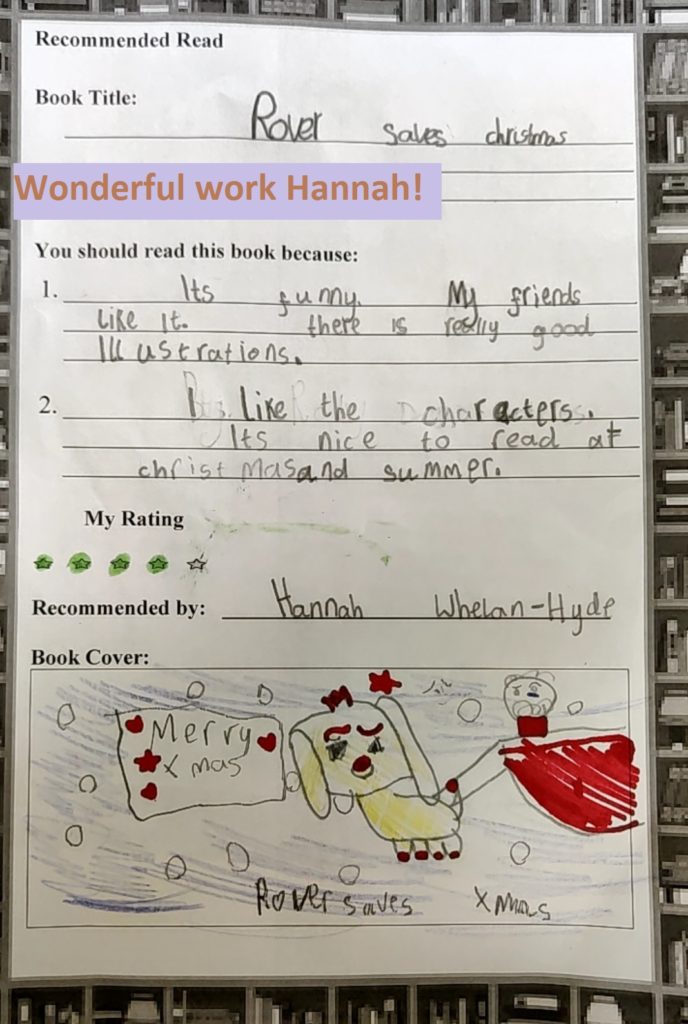 Recommended Read
Book Title:
Rover saves christmas
Wonderful work Hannah!
You should read this book because:
1. Its funny. My friends
like it. there is really good
Illustrations.
2. I like the characters.
Its nice to read at
christmasand summer.
My Rating
Recommended by: Hannah Whelan-Hyde
Book Cover:
Merry
X mas
Rover saves Xmas